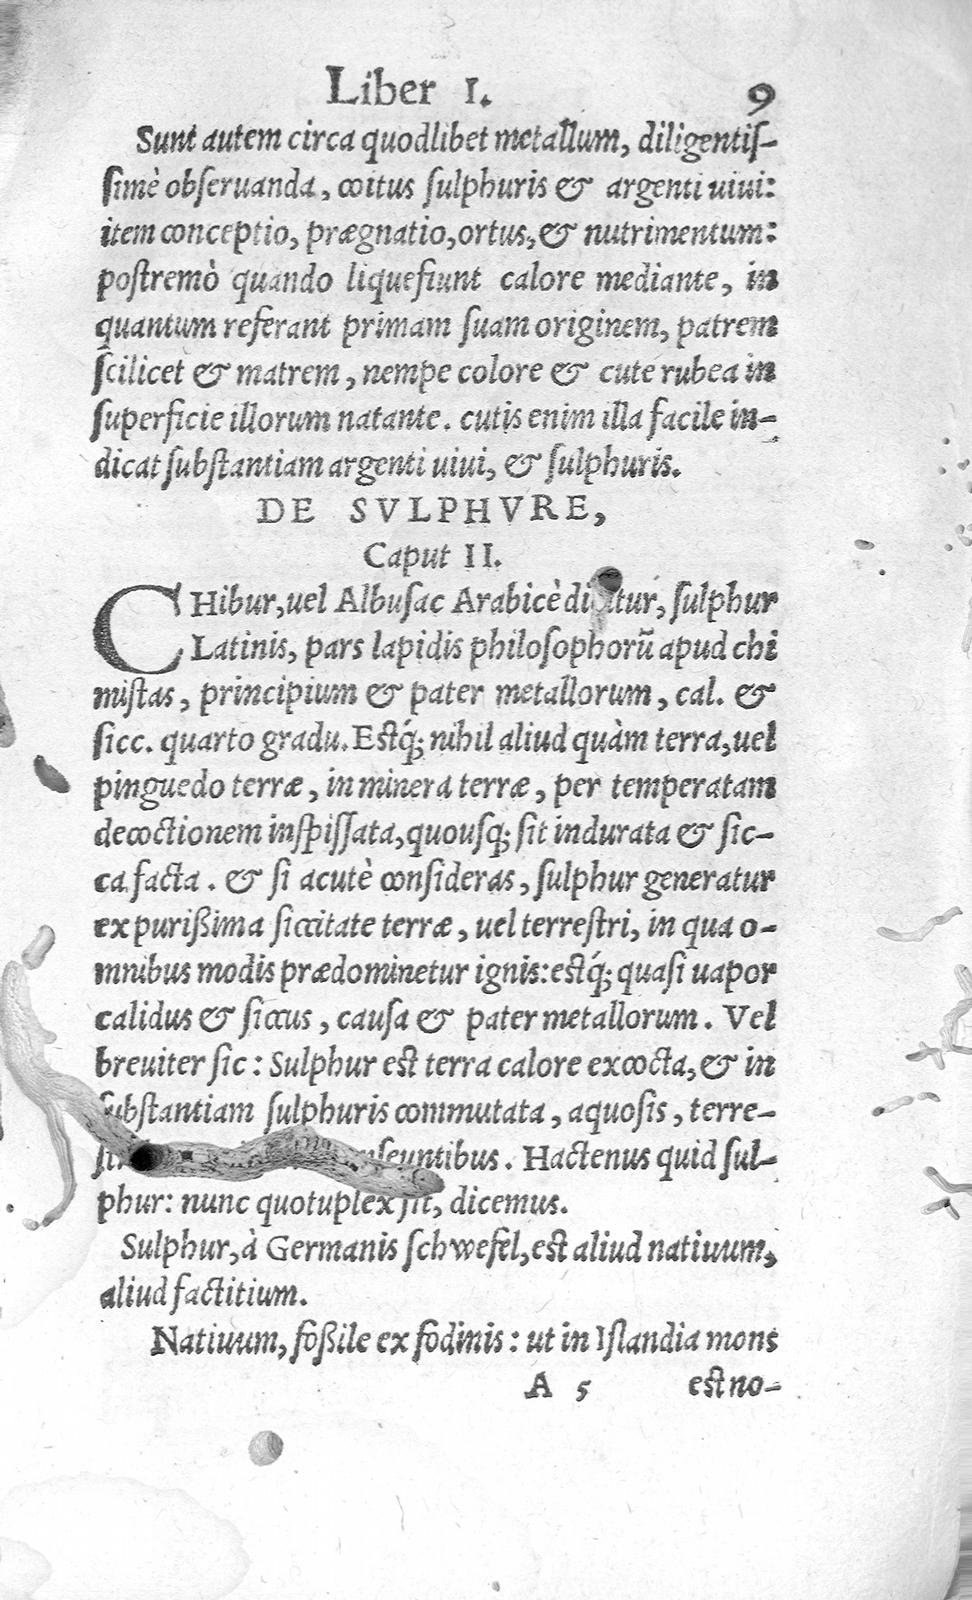 Liber I. 9
Sunt autem circa quodlibet metallum, diligentiſ-
ſimè obſeruanda, coitus ſulphuris & argenti uiui:
item conceptio, prægnatio, ortus, & nutrimentum:
poſtremò quando liquefiunt calore mediante, in
quantum referant primam ſuam originem, patrem
ſcilicet & matrem, nempe colore & cute rubea in
ſuperficie illorum natante. cutis enim illa facile in-
dicat ſubſtantiam argenti uiui, & ſulphuris.
DE SVLPHVRE,
Caput II.
CHibur, uel Albuſac Arabicè dicitur, ſulphur
Latinis, pars lapidis philoſophorũ apud chi
miſtas, principium & pater metallorum, cal. &
ſicc. quarto gradu. Eſtq́; nihil aliud quàm terra, uel
pinguedo terræ, in minera terræ, per temperatam
decoctionem inſpiſſata, quouſq; ſit indurata & ſic-
ca facta. & ſi acutè conſideras, ſulphur generatur
ex purißima ſiccitate terræ, uel terreſtri, in qua o-
mnibus modis prædominetur ignis: eſtq́; quaſi uapor
calidus & ſiccus, cauſa & pater metallorum. Vel
breuiter ſic: Sulphur eſt terra calore excocta, & in
ſubſtantiam ſulphuris commutata, aquoſis, terre-
Hactenus quid ſul-
phur: nunc quotuplex ſit, dicemus.
Sulphur, à Germanis ſchwefel, eſt aliud natiuum,
aliud factitium.
Natiuum, foßile ex fodinis: ut in Iſlandia mons
A 5 eſt no-